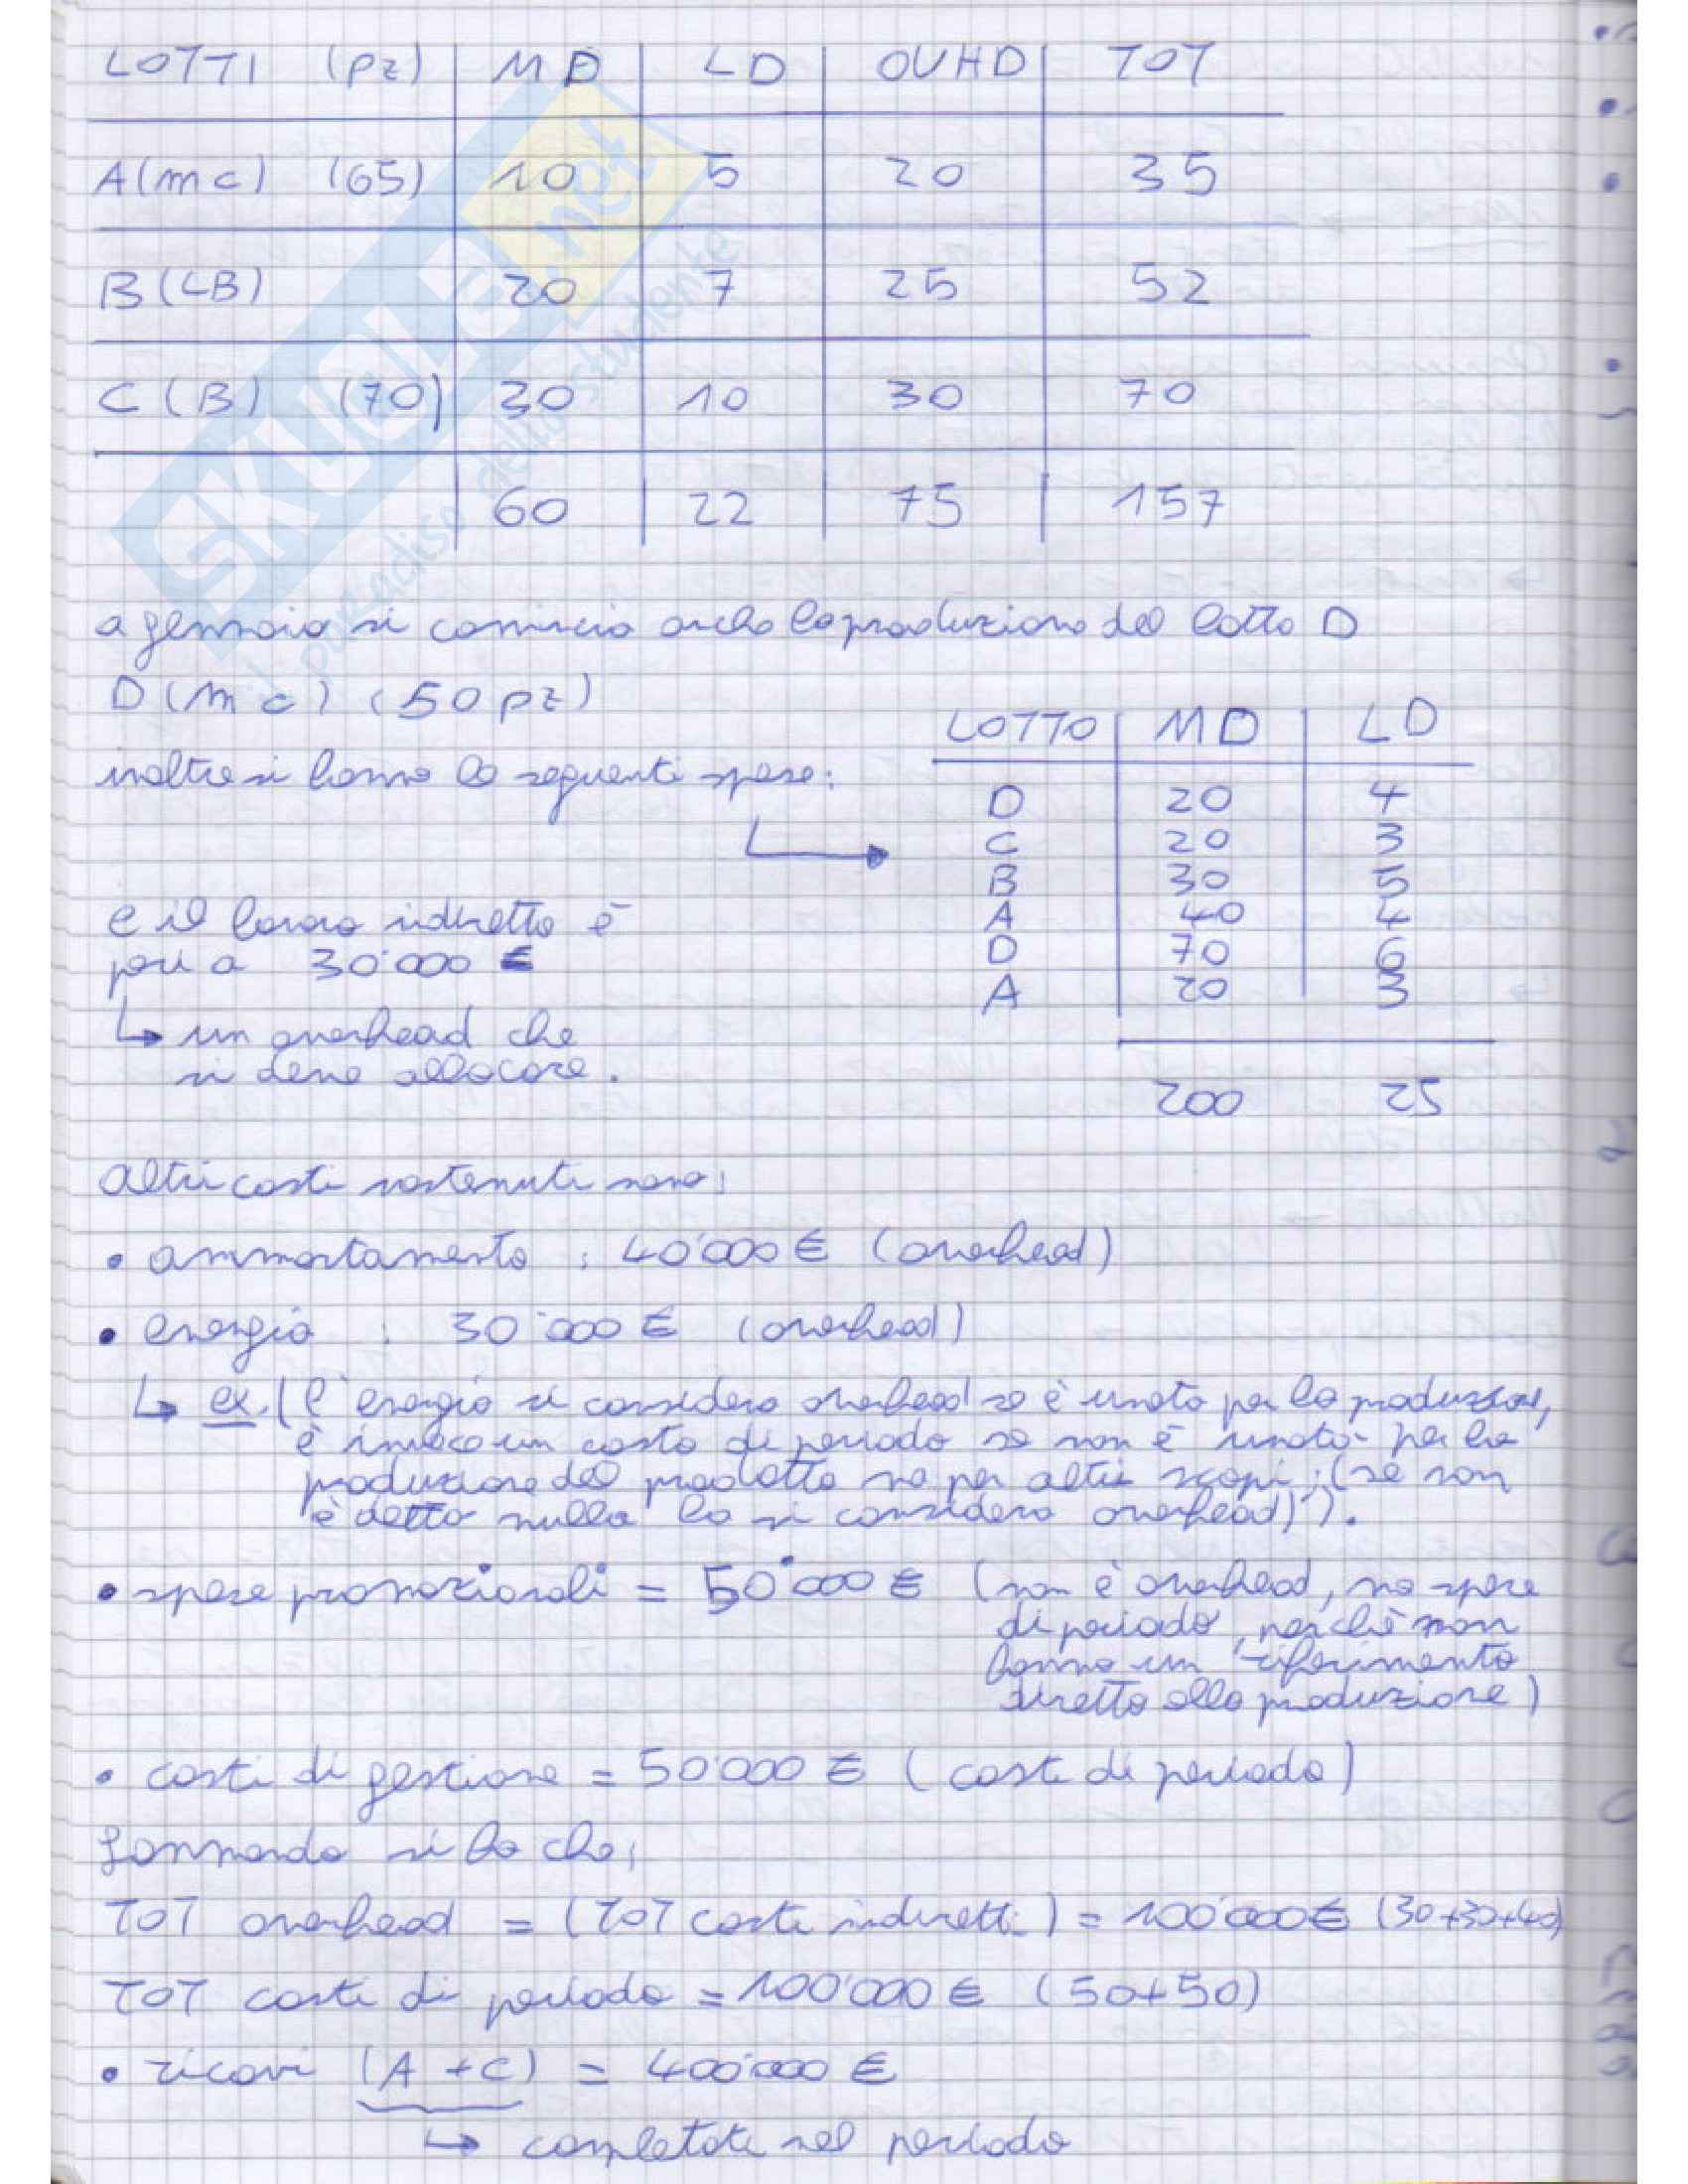 LOTTI (pz) MD LD OVHD TOT
A(mc) (65) 10 5 20 35
B(LB) 20 7 25 52
C(B) (70) 30 10 30 70
60 22 75 157
a gennaio si comincia anche la produzione del lotto D
D(mc) (50 pz)
inoltre si hanno le seguenti spese:
LOTTO MD LD
D 20 4
C 20 3
B 30 5
A 40 4
D 70 6
A 20 3
200 25
e il lavoro indiretto è
pari a 30'000 €
↳ un overhead che
si deve allocare.
altri costi sostenuti sono:
• ammortamento : 40'000 € (overhead)
• energia : 30'000 € (overhead)
↳ ex. (l'energia si considera overhead se è usata per la produzione,
è invece un costo di periodo se non è usata per la
produzione del prodotto ma per altri scopi; (se non
è detto nulla la si considera overhead)).
• spese promozionali = 50'000 € (non è overhead, ma spese
di periodo, perchè non
hanno un riferimento
diretto alla produzione)
• costi di gestione = 50'000 € (costi di periodo)
sommando si ha che:
TOT overhead = (TOT costi indiretti) = 100'000 € (30+30+40)
TOT costi di periodo = 100'000 € (50+50)
• ricavi (A + C) = 400'000 €
↳ completati nel periodo
SKUOLA.net
il paradiso dello studente